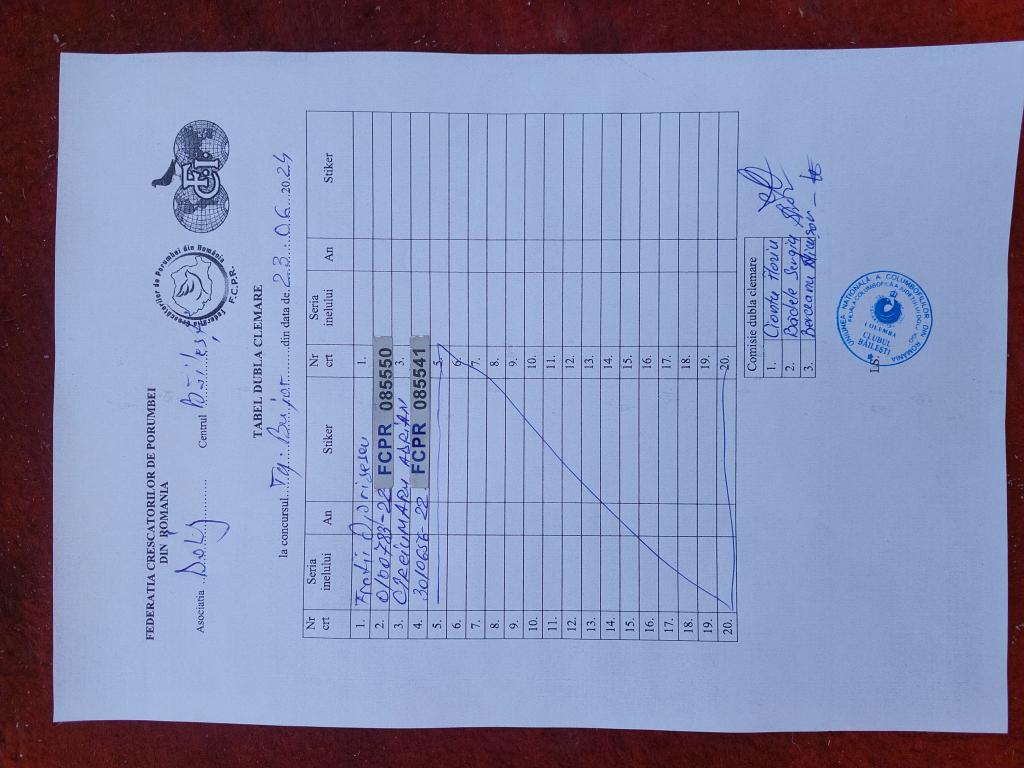 FEDERATIA CRESCATORILOR DE PORUMBEI
DIN ROMANIA
Asociatia ..Dolj............ Centrul Băilești
Federatia Crescătorilor de Porumbei din România
F.C.P.R.
FCI
TABEL DUBLA CLEMARE
la concursul...Tg. Bujor.......din data de.23...06...20.24
Nr crt Seria inelului An Stiker Nr crt Seria inelului An Stiker
1. Frații 1.
2. 0160783-22 FCPR 085550
3. CIREIUMARU ADRIAN 3.
4. 3010656-22 FCPR 085541
5. 5.
6. 6.
7. 7.
8. 8.
9. 9.
10. 10.
11. 11.
12. 12.
13. 13.
14. 14.
15. 15.
16. 16.
17. 17.
18. 18.
19. 19.
20. 20.
Comisie dubla clemare
1. Ciontu Floriu
2. Badele Sergiu
3. Berceanu
LS.
UNIUNEA NATIONALĂ A COLUMBOFILILOR DIN ROMANIA
FILIALA COLUMBOFILĂ A JUDETULUI DOLJ
COLUMBA
CLUBUL
BĂILEȘTI